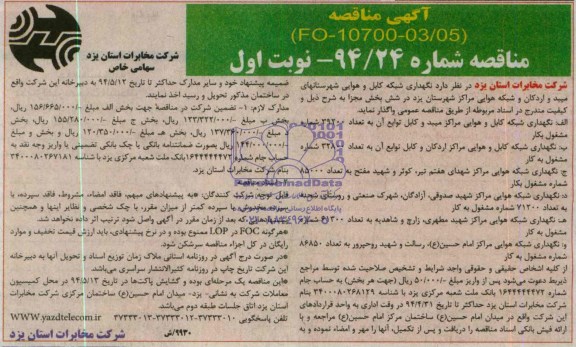 آگهی مناقصه
(FO-10700-03/05)
مناقصه شماره ۹۴/۲۴- نوبت اول
شرکت مخابرات استان یزد
سهامی خاص
شرکت مخابرات استان یزد در نظر دارد نگهداری شبکه کابل و هوایی شهرستانهای
میبد و اردکان و شبکه هوایی مراکز شهرستان یزد در شش بخش مجزا به شرح ذیل و
کیفیت مندرج در اسناد مربوطه از طریق مناقصه عمومی واگذار نماید.
الف: نگهداری شبکه کابل و هوایی مراکز میبد و کابل توابع آن به تعداد شماره
مشغول بکار
ب: نگهداری شبکه کابل و هوایی مراکز اردکان و کابل توابع آن به تعداد شماره
مشغول به کار
ج: نگهداری شبکه هوایی مراکز شهدای هفتم تیر، کوثر و شهید مفتح به تعداد ۸۵۰۰۰
شماره مشغول بکار
د: نگهداری شبکه هوایی مراکز شهید صدوقی، آزادگان، شهرک صنعتی و
به تعداد ۷۱۲۰۰ شماره مشغول به کار
هـ: نگهداری شبکه هوایی مراکز شهید مطهری، زارچ و شاهدیه به تعداد
مشغول به کار
و: نگهداری شبکه هوایی مراکز امام حسین(ع)، رسالت و شهید روحپرور به تعداد ۸۶۸۵۰
شماره مشغول بکار
از کلیه اشخاص حقیقی و حقوقی واجد شرایط و تشخیص صلاحیت شده توسط مراجع
ذیربط دعوت می‌شود پس از واریز مبلغ ۵۰۰/۰۰۰ ریال (جهت هر بخش) به حساب جام
شماره ۱۶۴۴۴۴۴۴۷۲ بانک ملت شعبه مرکزی یزد با شناسه
شرکت مخابرات استان یزد حداکثر تا تاریخ ۹۴/۴/۳۱ در وقت اداری به واحد قراردادهای
این شرکت واقع در میدان امام حسین(ع) ساختمان مرکز امام حسین(ع) مراجعه و با
ارائه فیش بانکی اسناد مناقصه را دریافت و پس از تکمیل، آنها را مهر و امضاء نموده و به
ضمیمه پیشنهاد خود و سایر مدارک حداکثر تا تاریخ ۹۴/۵/۱۲ به دبیرخانه این شرکت واقع
در ساختمان مذکور تحویل و رسید اخذ نمایند.
مدارک لازم: ۱- تضمین شرکت در مناقصه جهت بخش الف مبلغ ۱۵۶/۶۶۵/۰۰۰ ریال،
بخش ب مبلغ ۱۳۲/۳۲۲/۰۰۰ ریال، بخش ج مبلغ ۱۵۵/۲۸۰/۰۰۰ ریال، بخش د
مبلغ ریال، بخش هـ مبلغ ۱۲۰/۳۵۰/۰۰۰ ریال و بخش و مبلغ
۱۴۴/۰۰۰/۰۰۰ ریال بصورت ضمانتنامه بانکی یا چک بانکی تضمینی یا واریز وجه نقد به
حساب جام شماره بانک ملت شعبه مرکزی یزد با شناسه
بنام شرکت مخابرات استان یزد.
قابل توجه شرکت کنندگان: *به پیشنهادهای مبهم، فاقد امضاء، مشروط، فاقد سپرده، با
سپرده مخدوش یا سپرده کمتر از میزان مقرر، با چک شخصی و نظایر اینها و همچنین
پیشنهادهایی که بعد از زمان مقرر در آگهی واصل شود ترتیب اثر داده نخواهد شد.
*هرگونه FOC در LOP ممنوع بوده و در نرخ پیشنهادی، باید ارزش قیمت تخفیف و موارد
رایگان در کل اجزاء مناقصه سرشکن شود.
*در صورت درج آگهی در روزنامه استانی ملاک زمان توزیع اسناد و تحویل آنها به دبیرخانه
این شرکت تاریخ چاپ در روزنامه کثیرالانتشار سراسری می‌باشد.
*این مناقصه یک مرحله‌ای بوده و گشایش پاکت‌ها در تاریخ ۹۴/۵/۱۳ در محل کمیسیون
معاملات شرکت به نشانی- یزد- میدان امام حسین(ع) ساختمان مرکزی شرکت مخابرات
استان یزد، اتاق جلسات طبقه دوم می‌باشد.
تلفن پاسخگویی WWW.yazdtelecom.ir
شرکت مخابرات استان یزد
۹۹۳۰/ش
ParsNamadData